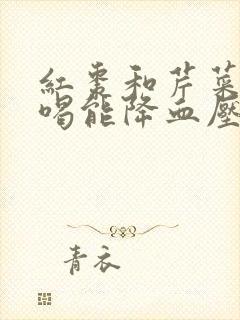 紅棗和芹菜
喝能降血壓
青衣